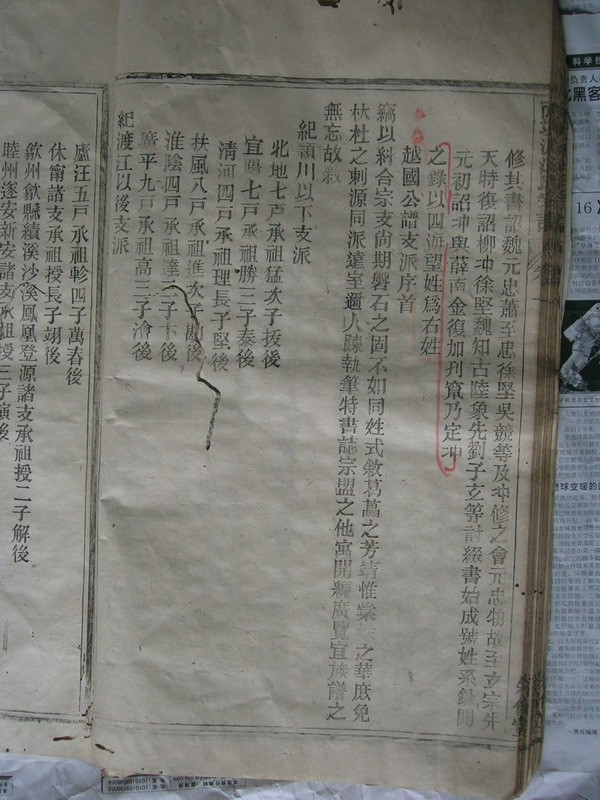 修其書詔魏元忠蕭至忠徐堅吳競等及冲修之會元忠物故至玄宗先
天時復詔柳冲徐堅魏知古陸象先劉子玄等討綴書始成號姓系錄開
元初詔冲與薛南金復加刋竄乃定冲
之錄以四海望姓爲右姓
越國公譜支派序首
竊以糾合宗支尙期磐石之固不如同姓式斂葛藟之芳靖惟棠 之華庶免
杕杜之刺源同派遠室邇人疎執筆特書誌宗盟之他寓開編廣覽宜族譜之
無忘故敍
紀頴川以下支派
北地七戸承祖猛次子按後
宜陽七戸承祖勝二子泰後
淸河四戸承祖理長子堅後
扶風八戸承祖進次子勘後
淮陰四戸承祖達三子 後
廣平九戸承祖高三子澮後
紀渡江以後支派
廬江五戸承祖軫四子萬春後
休甯諸支承祖授長子翊後
歙州歙縣績溪沙溪鳳凰登源諸支承祖授二子解後
睦州遂安新安諸支承祖授三子演後
科学技
负责人
黑客
16
地球变暖的